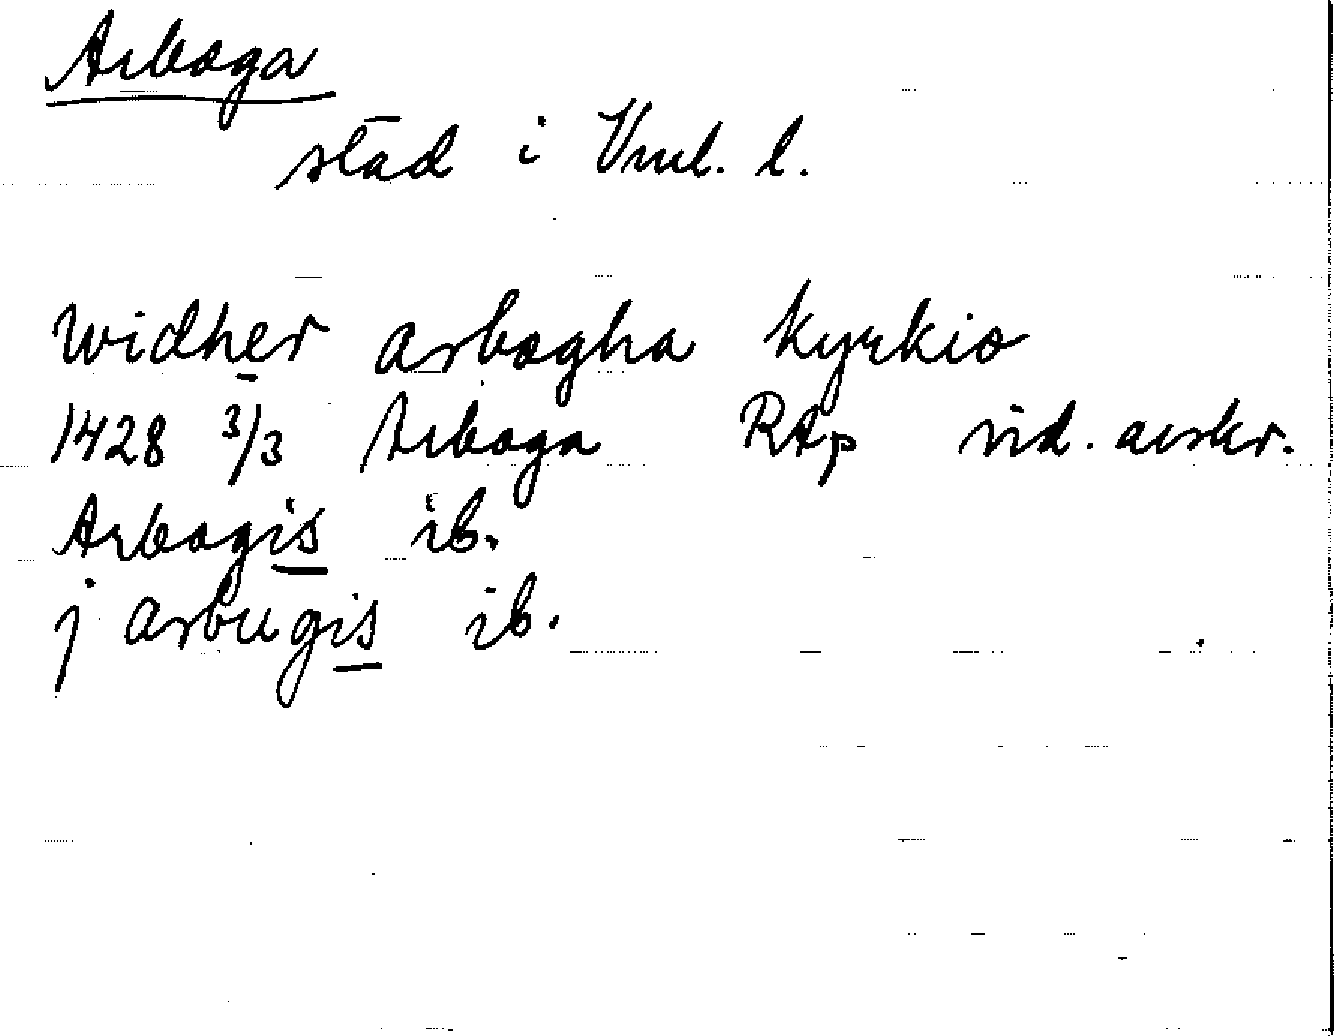 Arboga
stad i Vml. l.
widher arbogha kyrkio
1428 3/3 Arboga RAp vid. avskr.
Arbogis ib.
j arbugis ib.